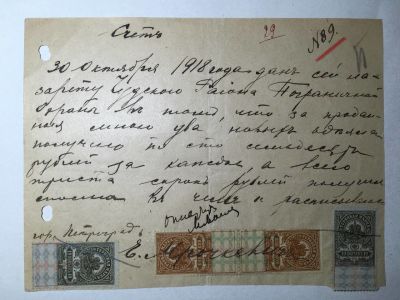 Счетъ
29
№89.
30 Октября 1918 года данъ сей ла-
зарету Чудского Района Пограничной
Охраны въ томъ, что за продан-
ныя мною два новыхъ одеяла
получено по сто семьдесятъ
рублей за каждое, а всего
триста сорокъ рублей получилъ
сполна въ чемъ и расписываюсь
гор. Петроградъ